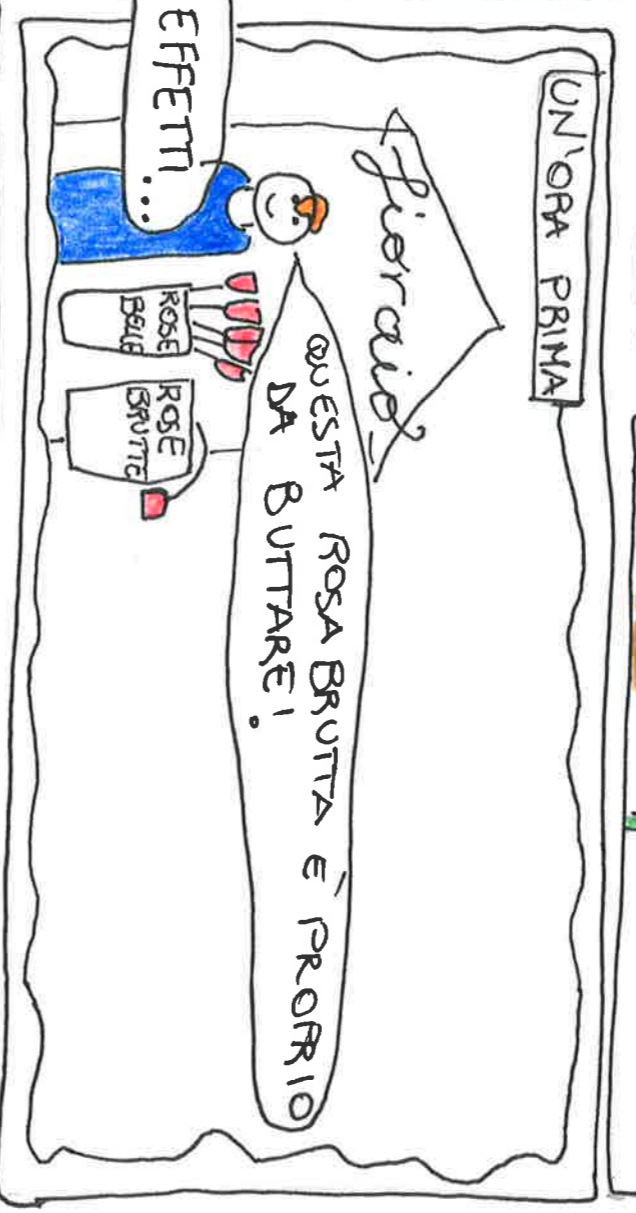 UN'ORA PRIMA
fioraio
QUESTA ROSA BRUTTA È PROPRIO
DA BUTTARE!
EFFETTI
...
ROSE
BELLE
ROSE
BRUTTE